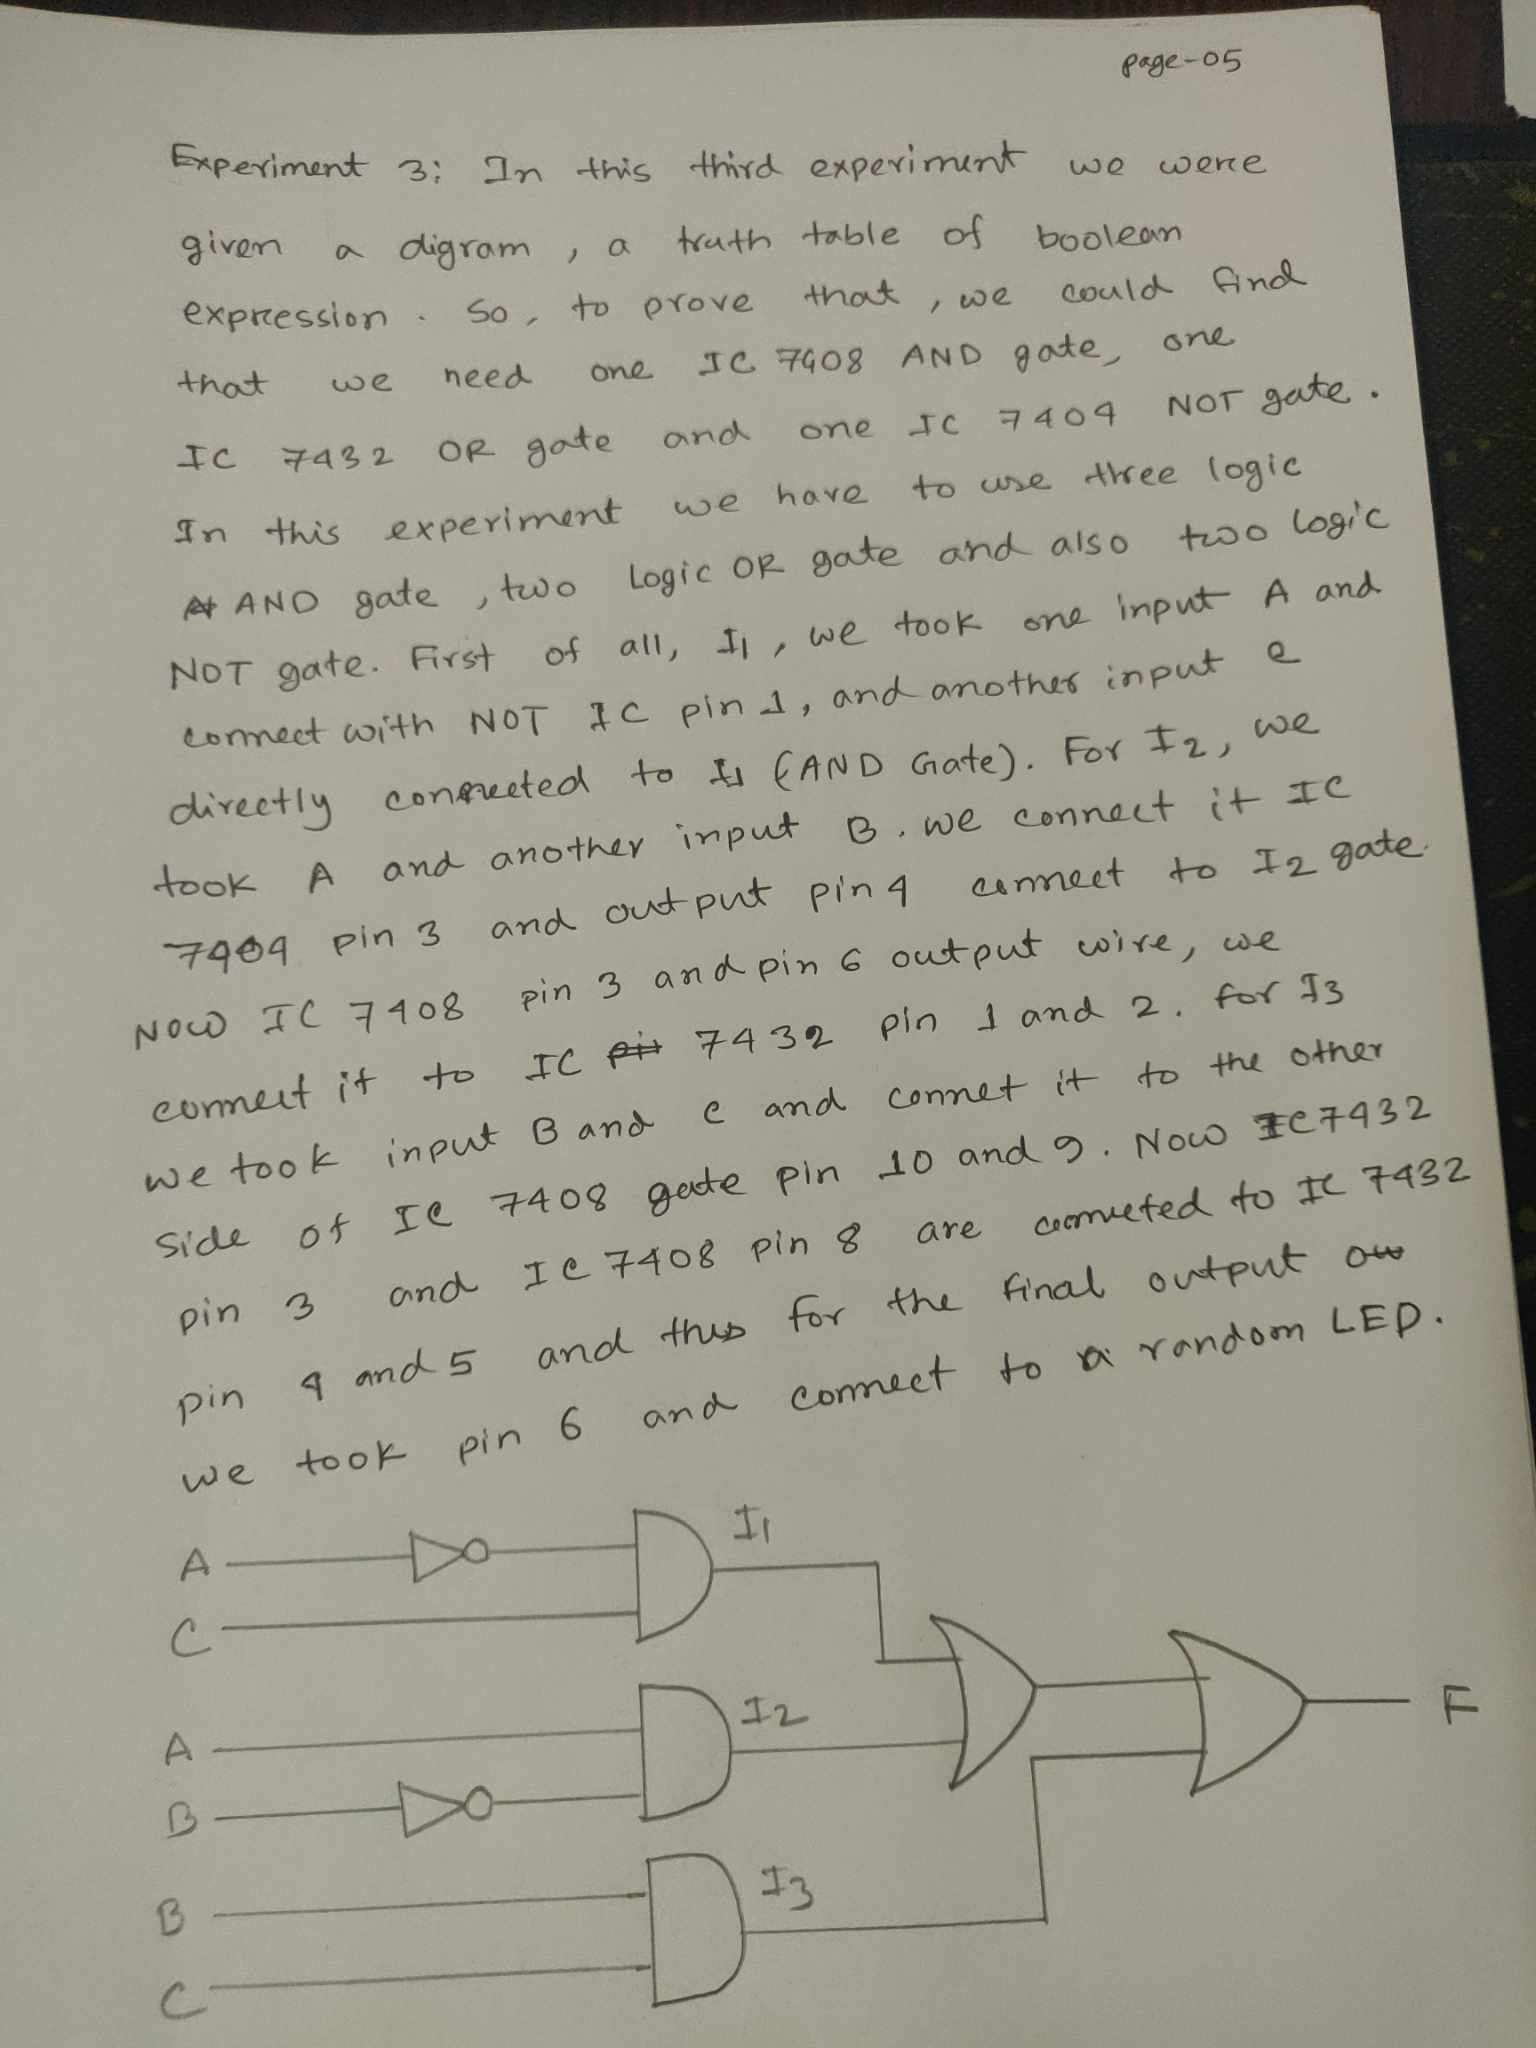 page-05
Experiment 3: In this third experiment we were
given a digram , a truth table of boolean
expression . so, to prove that , we could find
that we need one IC 7408 AND gate, one
IC 7432 OR gate and one IC 7404 NOT gate.
In this experiment we have to use three logic
AND gate , two Logic OR gate and also two logic
NOT gate. First of all, I1 , we took one input A and
connect with NOT IC pin 1, and another input c
directly connected to I1 (AND Gate). For I2, we
took A and another input B. we connect it IC
7404 pin 3 and output pin 4 connect to I2 gate.
Now IC 7408 pin 3 and pin 6 output wire, we
connect it to IC 7432 pin 1 and 2. for I3
we took input B and c and connet it to the other
side of IC 7408 gate pin 10 and 9. Now IC7432
pin 3 and IC 7408 pin 8 are connected to IC 7432
pin 4 and 5 and thus for the final output
we took pin 6 and connect to a random LED.
I1
A
C
I2
A
F
B
I3
B
C